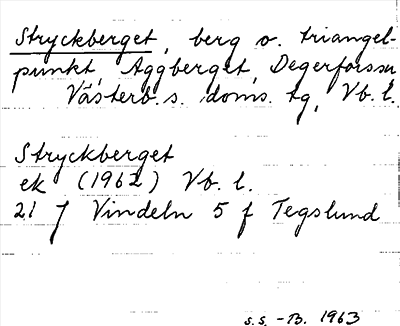 Stryckberget, berg o. triangel-
punkt, Aggberget, Degerfors sn
Västerb. s. doms. tg, Vb. l.
Stryckberget
ek (1962) Vb. l.
21 J Vindeln 5 f Tegslund
s.s. -B. 1963